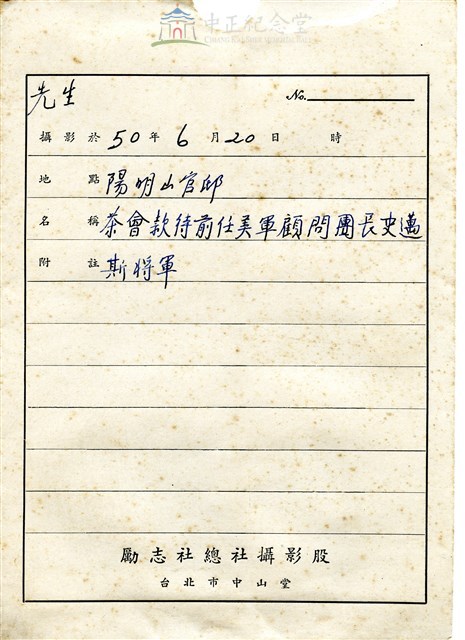 中正紀念堂
先生
No.
攝影於 50 年 6 月 20 日 時
地點 陽明山官邸
名稱 茶會款待前任美軍顧問團長史邁
附註 斯將軍
勵志社總社攝影股
台北市中山堂